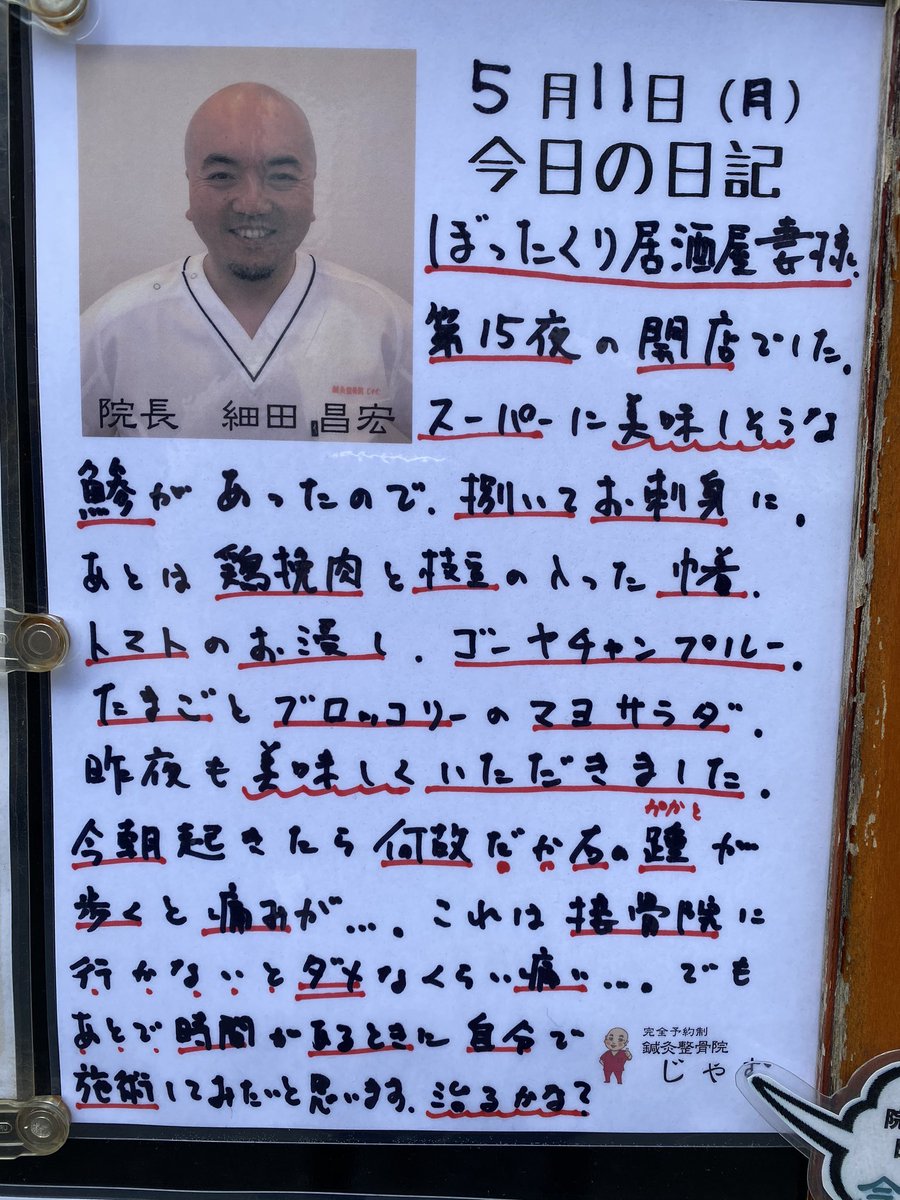 5月11日(月)
今日の日記
ぼったくり居酒屋妻様、
第15夜の開店でした。
スーパーに美味しそうな
鍼灸整骨院 じゃむ
院長 細田 昌宏
鰺があったので、捌いてお刺身に。
あとは鶏挽肉と枝豆の入った巾着、
トマトのお浸し、ゴーヤチャンプルー、
たまごとブロッコリーのマヨサラダ。
昨夜も美味しくいただきました。
かかと
今朝起きたら何故だか右の踵が
歩くと痛みが…。これは接骨院に
行かないとダメなくらい痛い…。でも
あとで時間があるときに自分で
施術してみたいと思います。治るかな?
完全予約制
鍼灸整骨院
じゃむ
院